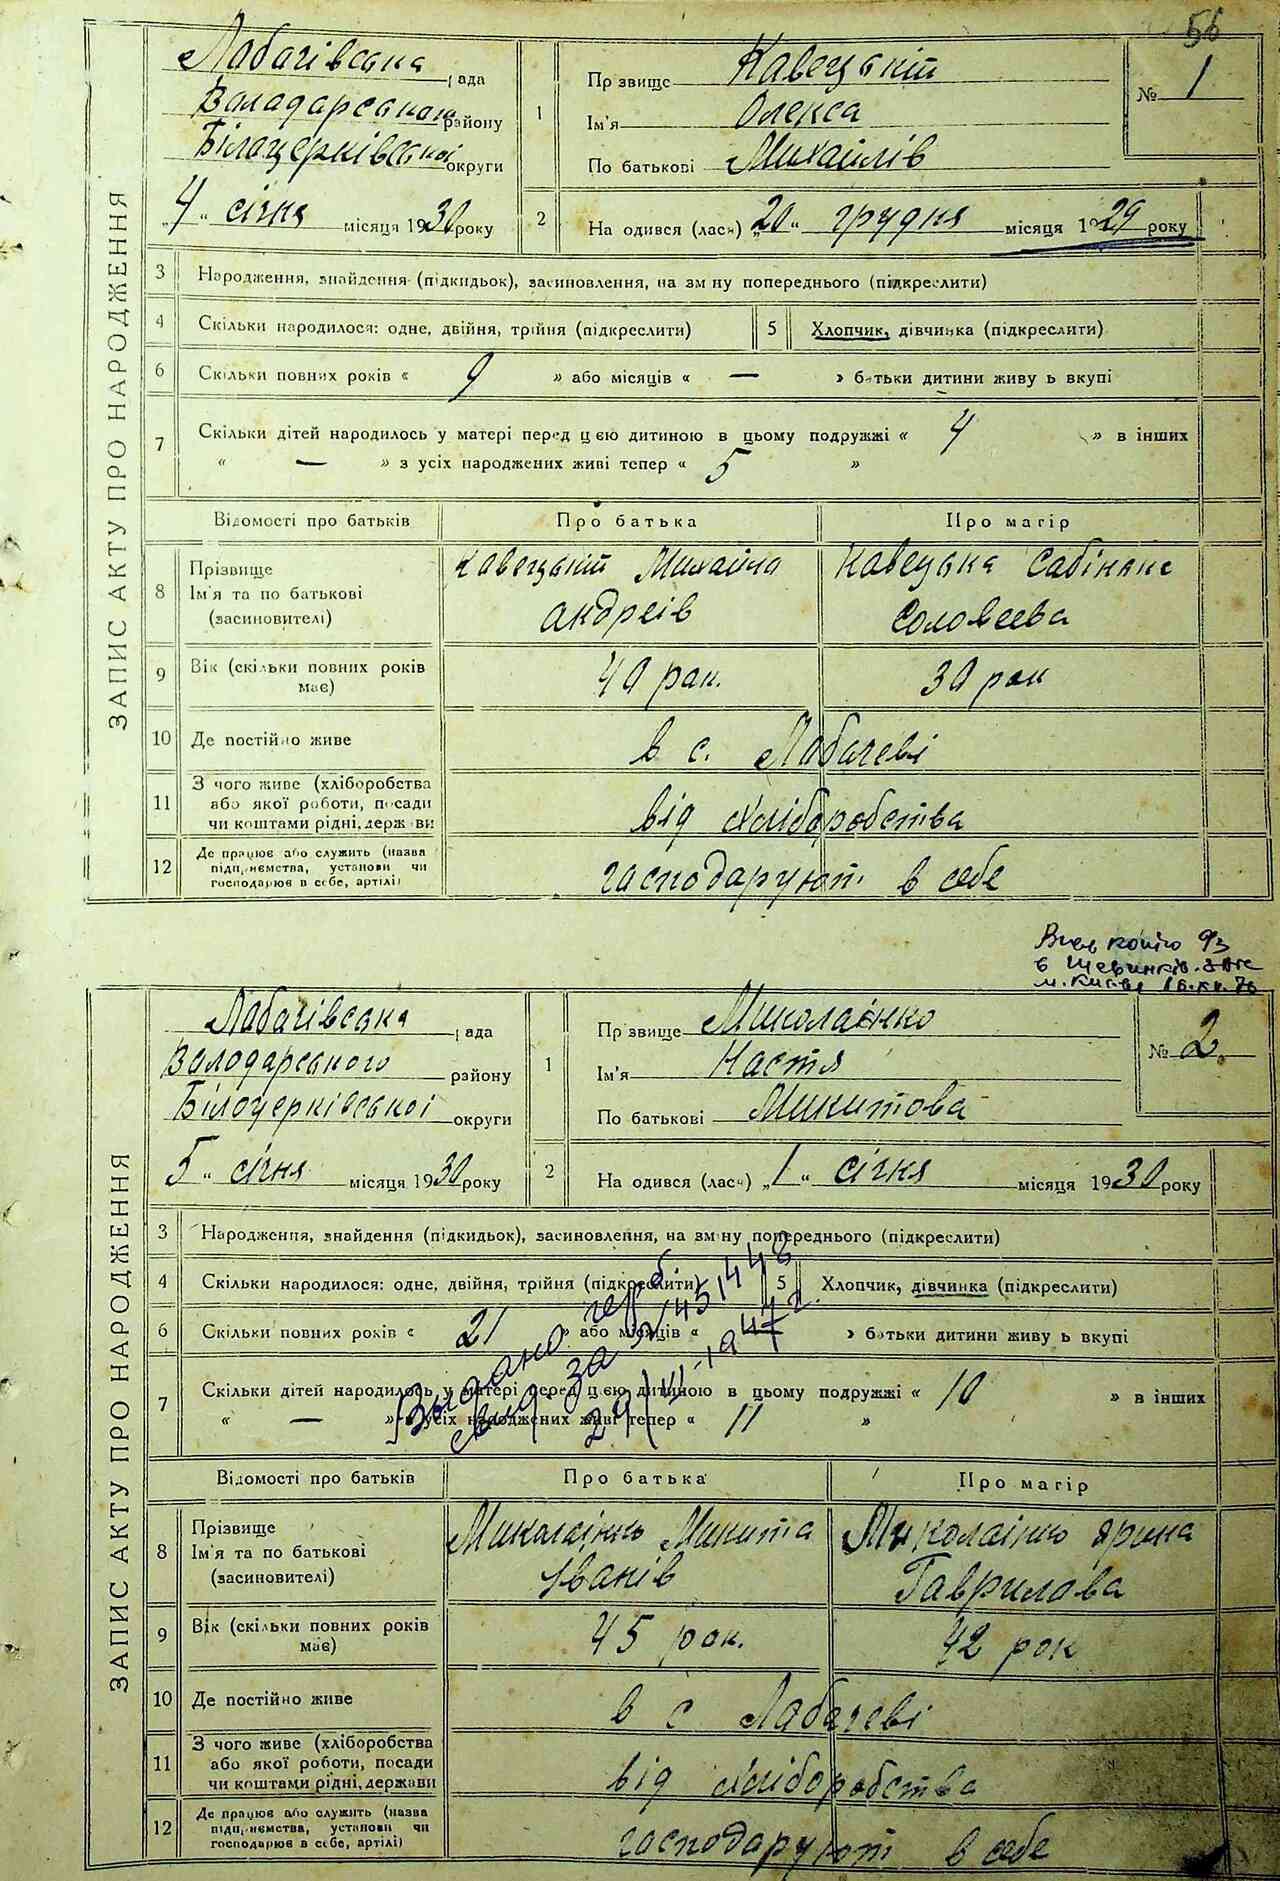 56
ЗАПИС АКТУ ПРО НАРОДЖЕННЯ
Лабачівська рада
Володарського району
Білоцерківської округи
„4“ січня місяця 1930 року
1 Прізвище Кавецький
Ім'я Олекса
По батькові Михайлів
№ 1
2 Народився (лась) „20“ грудня місяця 1929 року
3 Народження, знайдення (підкидьок), засиновлення, на зміну попереднього (підкреслити)
4 Скільки народилося: одне, двійня, трійня (підкреслити) 5 Хлопчик, дівчинка (підкреслити)
6 Скільки повних років « 9 » або місяців « — » батьки дитини живуть вкупі
7 Скільки дітей народилось у матері перед цією дитиною в цьому подружжі « 4 » в інших
« — » з усіх народжених живі тепер « 5 »
Відомості про батьків Про батька Про матір
8 Прізвище Ім'я та по батькові (засиновителі)
Кавецький Михайло Андреів
Кавецька Сабіняне Соловеева
9 Вік (скільки повних років має) 40 рок. 30 рок
10 Де постійно живе в с. Лабачеві
11 З чого живе (хліборобства або якої роботи, посади чи коштами рідні, держави
від хліборобства
12 Де працює або служить (назва підприємства, установи чи господарює в себе, артілі)
господарують в себе
Вид копію
м. Києва
ЗАПИС АКТУ ПРО НАРОДЖЕННЯ
Лабачівська рада
Володарського району
Білоцерківської округи
„5“ січня місяця 1930 року
1 Прізвище Миколаінко
Ім'я Настя
По батькові Микитова
№ 2.
2 Народився (лась) „1“ січня місяця 1930 року
3 Народження, знайдення (підкидьок), засиновлення, на зміну попереднього (підкреслити)
4 Скільки народилося: одне, двійня, трійня (підкреслити) 5 Хлопчик, дівчинка (підкреслити)
6 Скільки повних років « 21 » або місяців « — » батьки дитини живуть вкупі
7 Скільки дітей народилось у матері перед цією дитиною в цьому подружжі « 10 » в інших
« — » з усіх народжених живі тепер « 11 »
Видано герб.
свид. за № 451448
29/VI-1947 г.
Відомості про батьків Про батька Про матір
8 Прізвище Ім'я та по батькові (засиновителі)
Миколаінко Микита Іванів
Миколаінко Ярина Гаврилова
9 Вік (скільки повних років має) 45 рок. 42 рок
10 Де постійно живе в с Лабачеві
11 З чого живе (хліборобства або якої роботи, посади чи коштами рідні, держави
від хліборобства
12 Де працює або служить (назва підприємства, установи чи господарює в себе, артілі)
господарують в себе